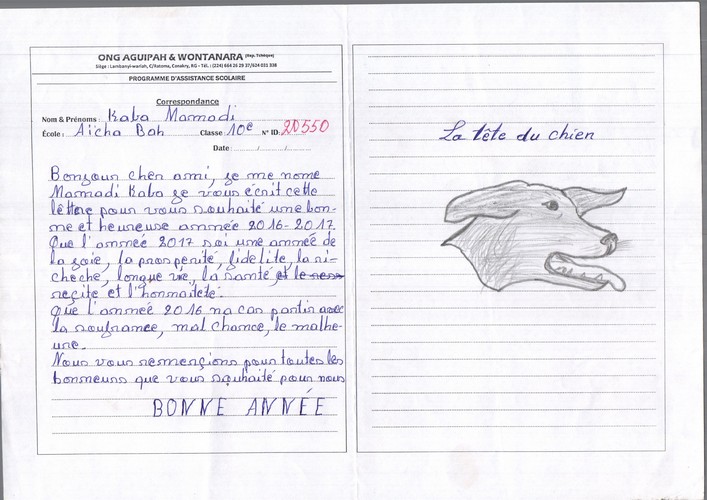 ONG AGUIPAH & WONTANARA (Rep. Tchèque)
Siège : Lambanyi-wariah, C/Ratoma, Conakry, RG - Tél. : (224) 664 26 29 27/624 031 338
PROGRAMME D'ASSISTANCE SCOLAIRE
Correspondance
Nom & Prénoms : Kaba Mamadi
École : Aïcha Bah Classe 10e N° ID: 20550
Date : / /
Bonjour cher ami, je me nome
Mamadi Kaba je vous écrit cette
lêttre pour vous souhaité une bon-
ne et heureuse année 2016-2017.
Que l'année 2017 soi une année de
la joie, la prospérité, fidelité, la ri-
cheche, longue vie, la santé, et le ress
reçite et l'honnaîteté.
Que l'année 2016 na can partir avec
la soufrance, mal chance, le malhe-
ure.
Nous vous remerçions pour toutes les
bonneurs que vous souhaité pour nous
BONNE ANNÉE
La tête du chien